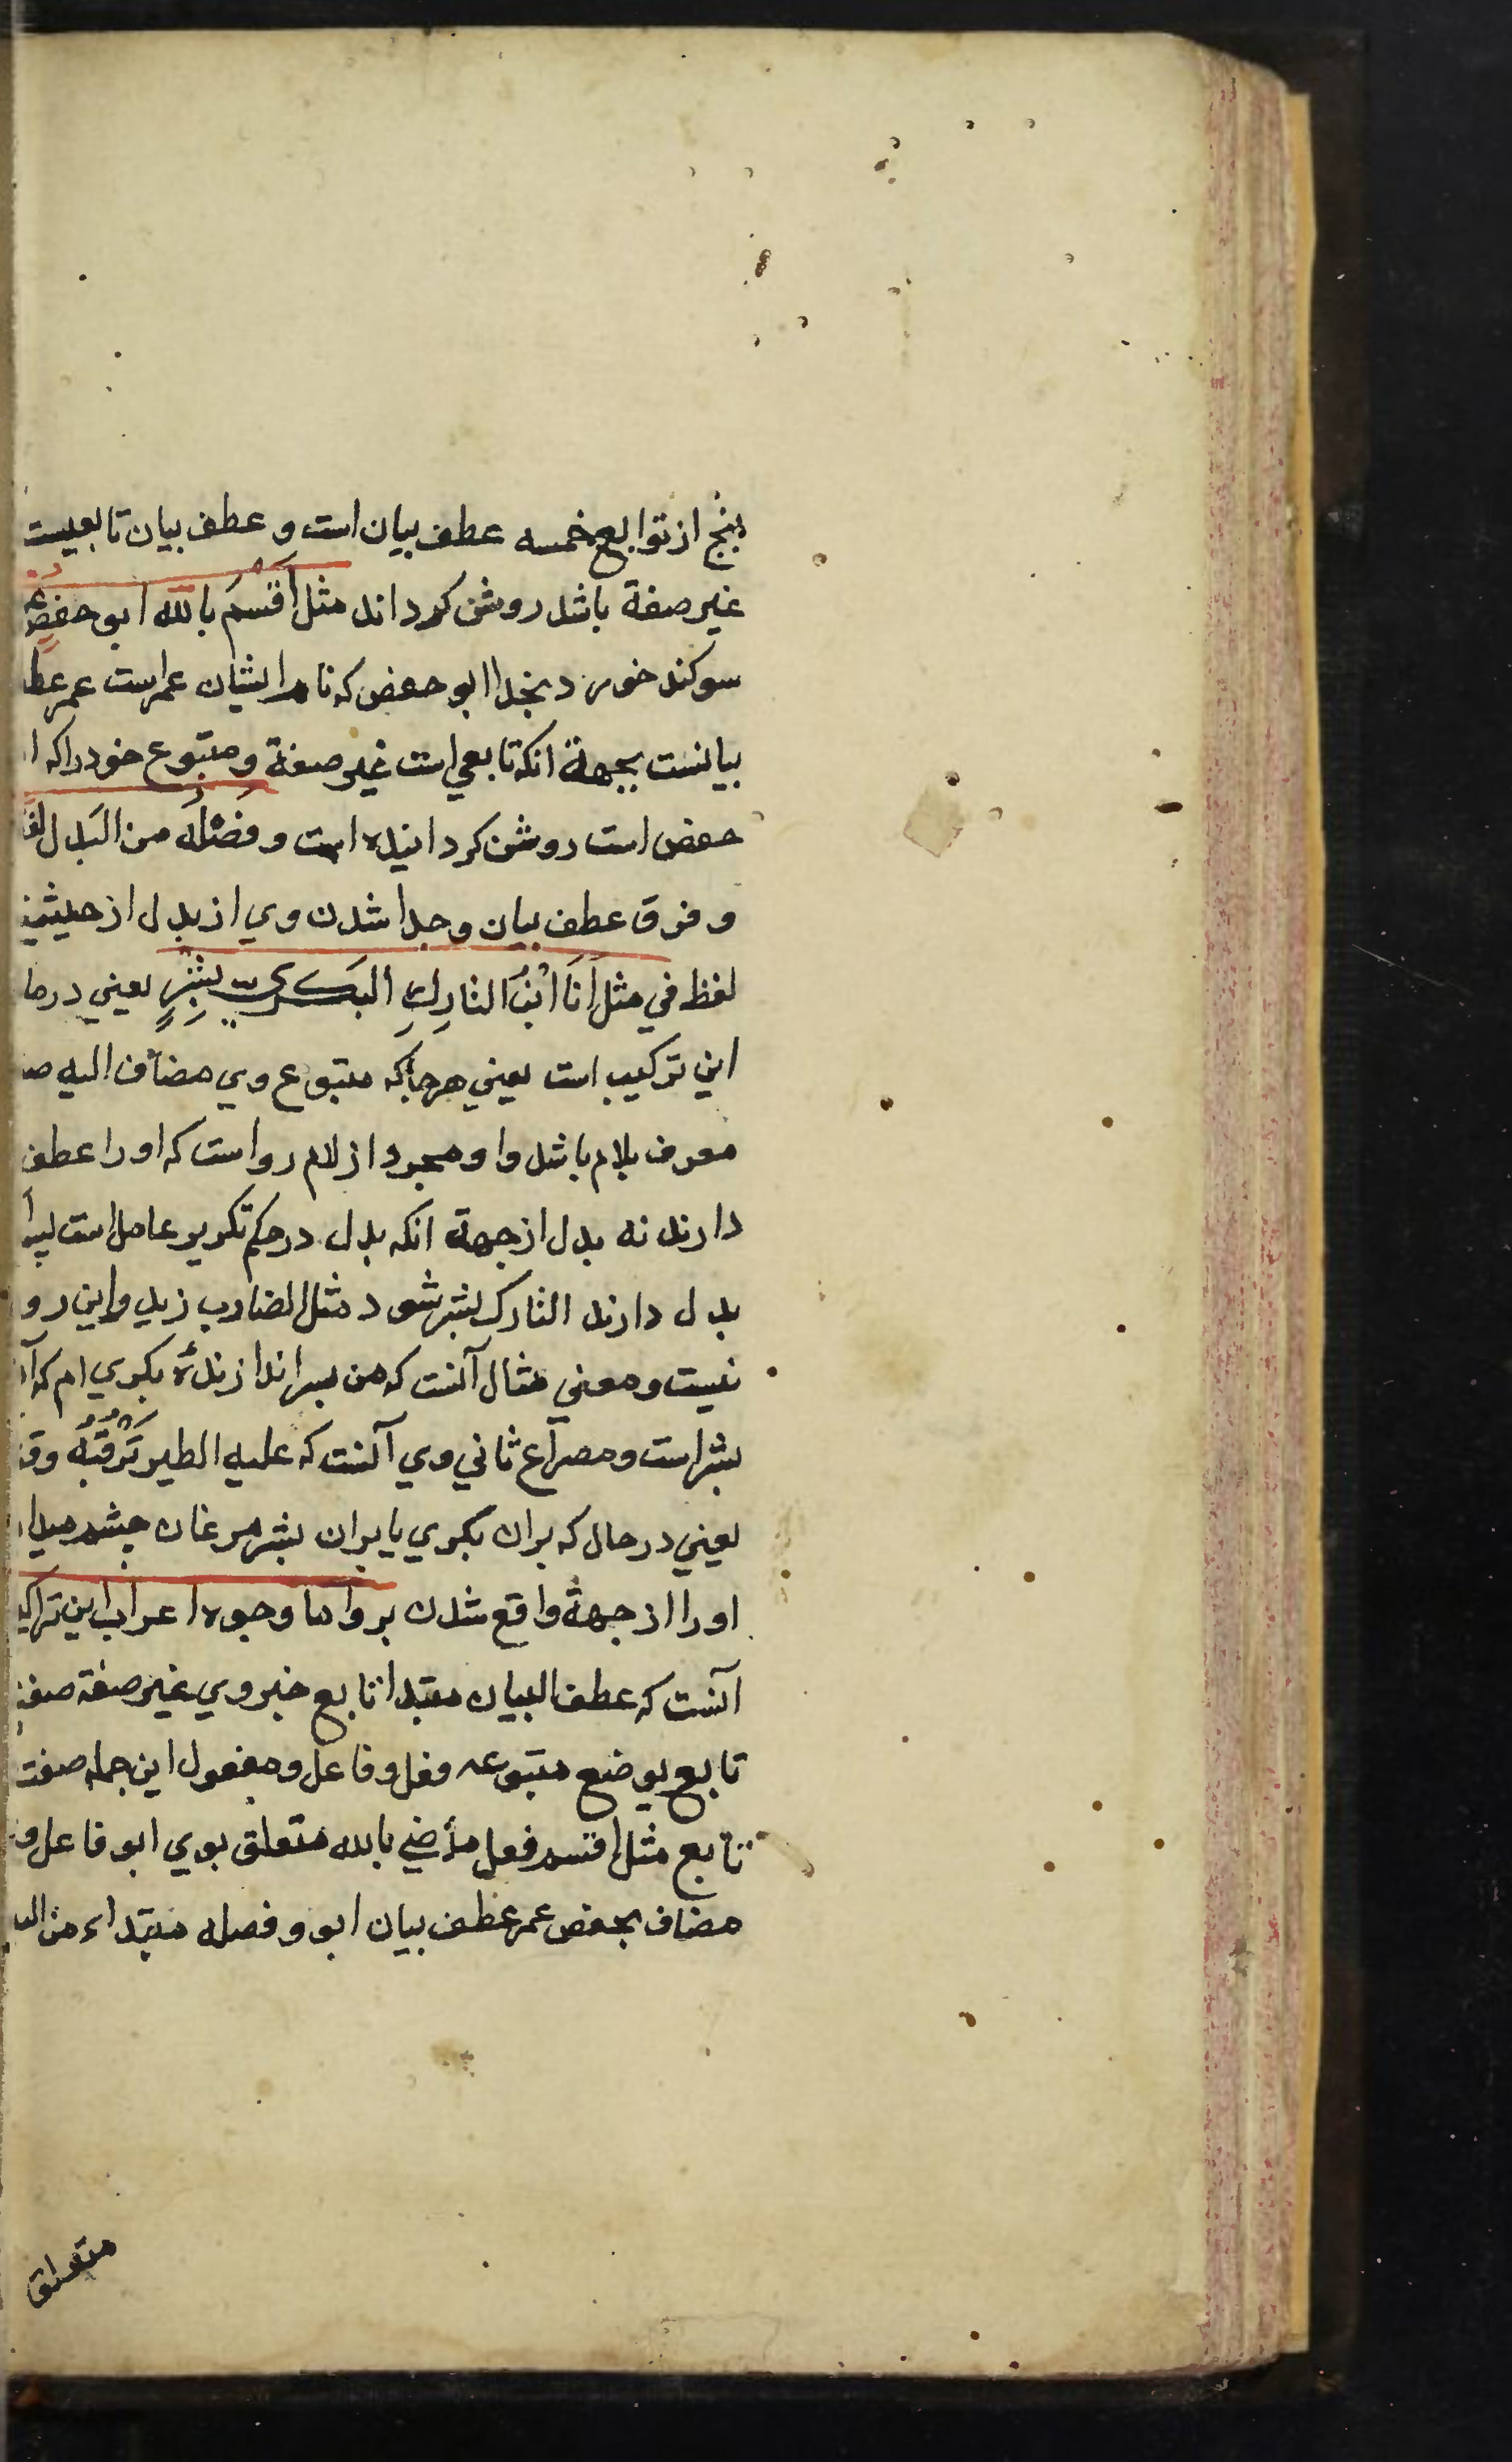 پنج از توابع خمسه عطف بیان است و عطف بیان تابعیست
غیر صفة باشد روشن کرداند مثل اَقْسَمَ بالله ابو حفصٍ
سوکند خورد بخدا ابو حفص که نام ایشان عمر است عمر عطف
بیانست بجهة انکه تابعی است غیر صفة و متبوع خود را که ا
حفص است روشن کردانیده است وَفَصْلُهُ من البَدل
و فرق عطف بیان و جدا شدن وی از بدل از حیثیة
لفظ فی مثل اَنَا ابْنُ التارِكِ البَكـــریِّ بِشْرٍ یعنی در ما
این ترکیب است یعنی هر جا که متبوع وی مضاف الیه
معرف بلام باشد و او مجرد از لام رواست که او را عطف
دارند نه بدل از جهة انکه بدل در حکم تکریر عامل است
بدل دارند التارک بشر شود مثل الضارب زید و این رو
نیست و معنی مثال آنست که من پسر اندازندهٔ بکری ام که آن
بشر است و مصراع ثانی وی آنست که علیه الطیر تَرْقُبُهُ
یعنی در حال که بران بکری یا بران بشر مرغان چشم میدا
او را از جهة واقع شدن بروا اما وجوه اعراب این
آنست که عطف البیان مبتدا تابع خبر وی غیر صفة صفة
تابع یوضح متبوعه فعل و فاعل و مفعول این جمله صفت
تابع مثل اقسم فعل ماضی بالله متعلق بوی ابو فاعل و
مضاف بحفص عمر عطف بیان ابو و فصله مبتداء من
متعلق